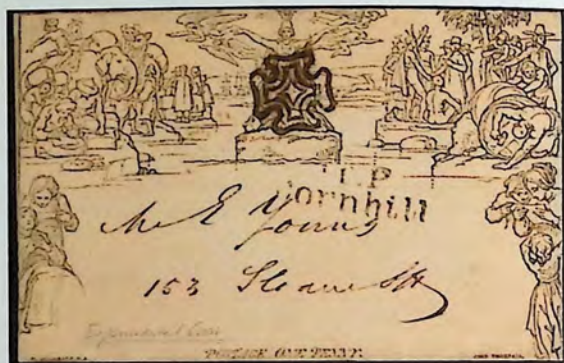 T.P
Cornhill
Mr E Young
153 Sloane St
POSTAGE ONE PENNY.